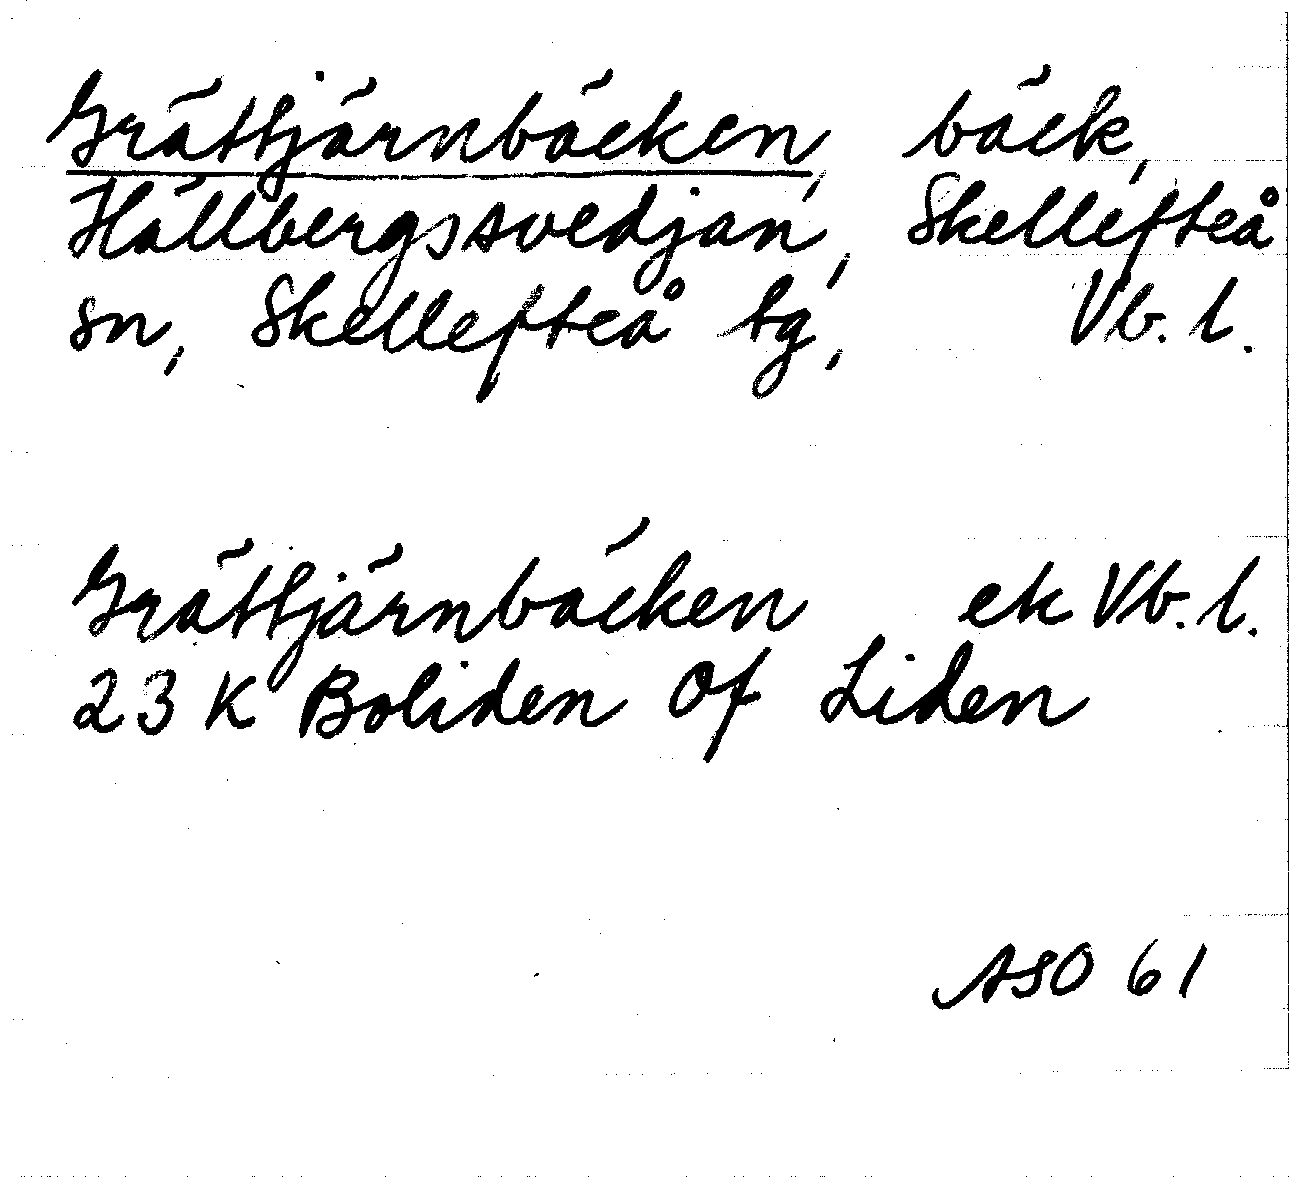 Grättjärnbäcken, bäck,
Hällbergssvedjan, Skellefteå
sn, Skellefteå tg, Vb. l.
Grättjärnbäcken ek Vb. l.
23 K Boliden Of Liden
ASO 61